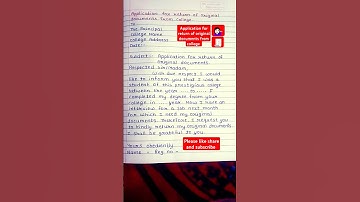 Application for return of original
documents from college.
To
The Principal
College Name
college Address
Date:-
Subject:- Application for return of
original documents.
Respected Sir/Madam,
With due respect I would
like to inform you that I was a
student of this prestigious college
between the year ... to ..... I
completed my degree from your
college in ..... year. Now I have an
interview for a job next month
for which I need my original
documents. Therefore, I request you
to kindly return my original documents.
I shall be grateful to you.
Yours obediently
Name - Reg no -
Application for
return of original
documents from
college
Please like share
and subscribe